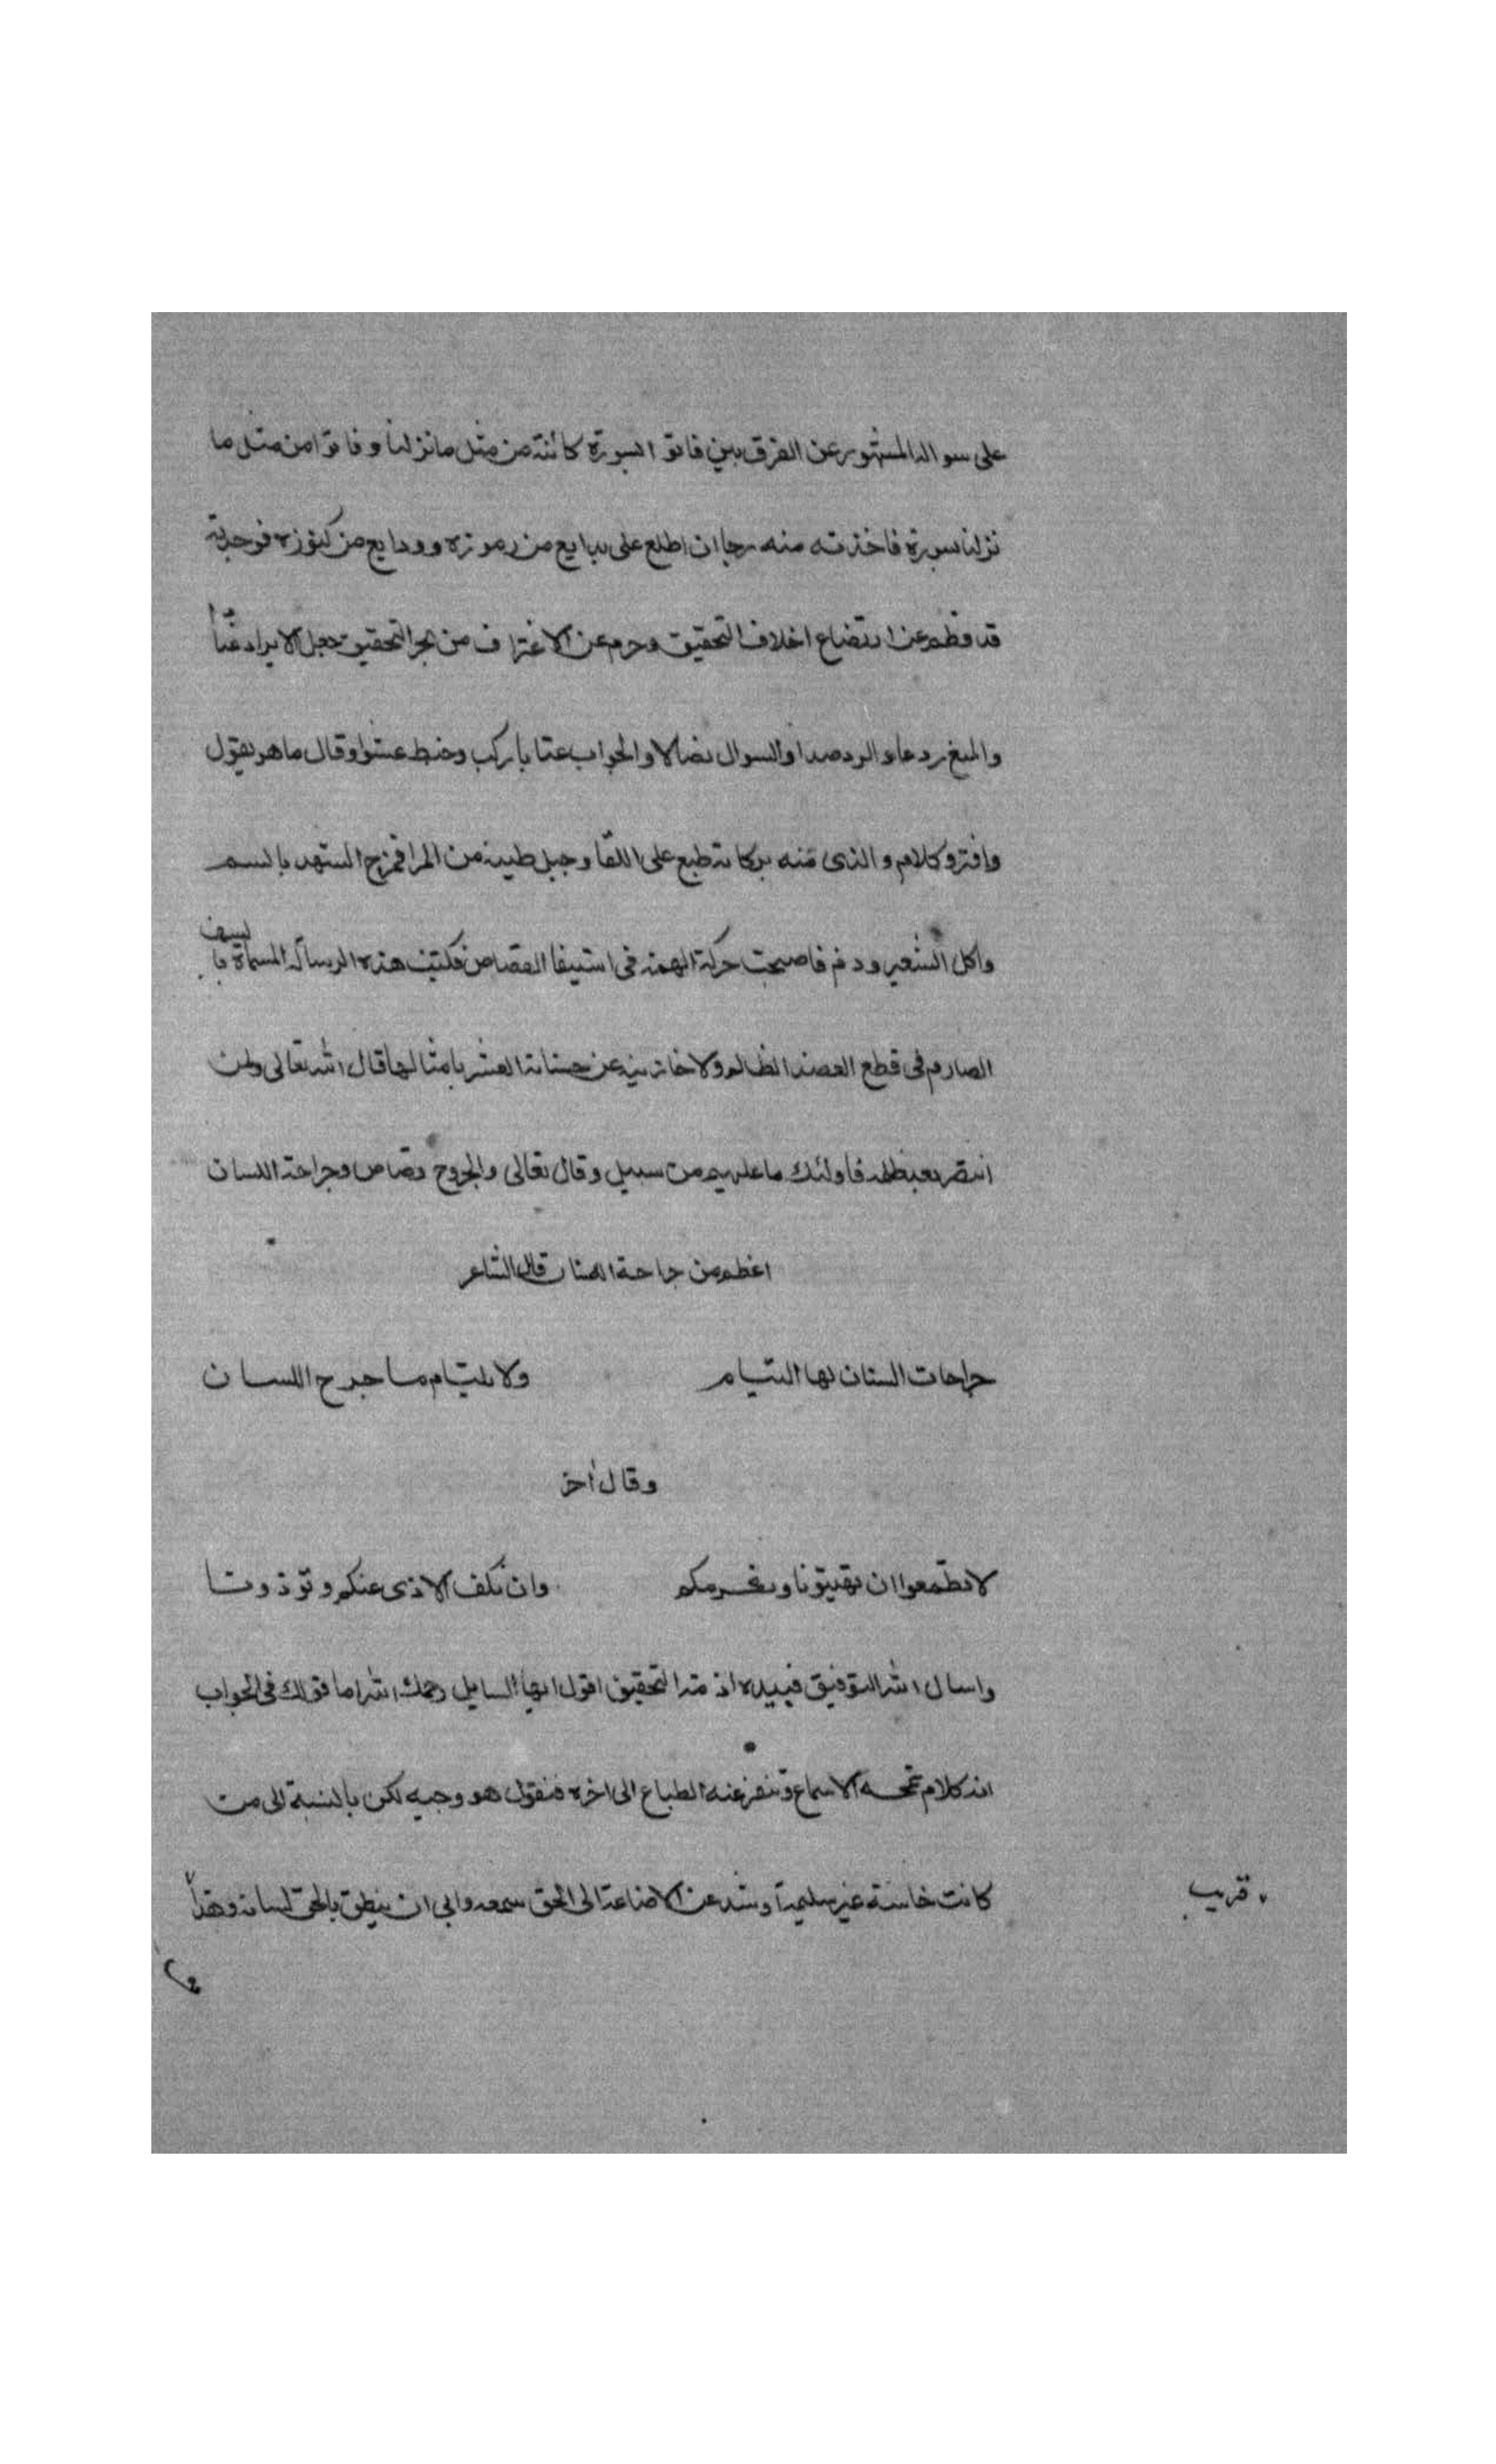 على سواله المشهور عن الفرق بين فاتو ابسورة كائنة من مثل ما نزلنا وفاتوا من مثل ما
نزلنا بسورة فاخذته منه رجا ان اطلع على بدايع من رموزه وودايع من كنوزه فوجدته
قد فطم عن ارتضاع اخلاف التحقيق وحرم عن الاغتراف من بحر التحقيق جعل الايراد
والرد صدا والسوال نضالا والجواب عتابا ركب وخبط عشوا وقال ما هو يقول
وافترو كلام والذى منه طبع على اللقا وجبل طينه من المرا فمزج الشهد بالسم
واكل الشعير وذم فاصبحت حركة الهمة فى استيفا القصاص فكتبت هذه الرسالة المسماة با
لسيف
الصارم فى قطع العضد الظالم من حسناته العشر بامثالها قال الله تعالى ولمن
انتصر بعد ظلمه فاولئك ما عليهم من سبيل وقال تعالى والجروح قصاص وجراحة اللسان
اعظم من جراحة السنان قال الشاعر
جراحات السنان لها التيام ولا يلتيام ما جرح اللسان
وقال اخر
لا تطمعوا ان تهينونا ونكرمكم وان نكف الاذى عنكم وتوذونا
واسال الله التوفيق فبيده ازمة التحقيق اقول ايها السايل رحمك الله اما قولك فى الجواب
انه كلام تمجه الاسماع وتنفر عنه الطباع الى اخره فنقول هو وجيه لكن بالنسبة الى من
كانت حاسته غير سليمة وسد عن الاصاغة الى الحق سمعه وابى ان ينطق بالحق لسانه وهذا
قريب